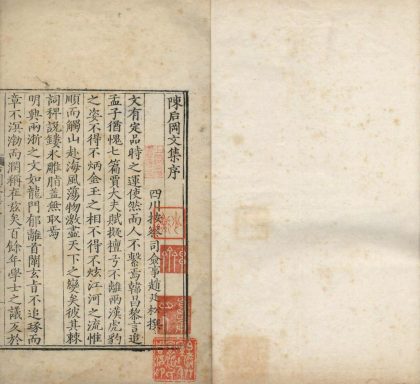 陳后岡文集序
四川按察司僉事趙廷松撰
文有定品時之運使然而人不繫焉韓昌黎言追
孟子猶愧七篇賈大夫賦擬檀弓不離兩漢虎豹
之姿不得不炳金玉之相不得不炫江河之流惟
順而觸山赴海風蕩物激盡天下之變矣彼其棘
詞稗說鏤氷雕脂蓋無取焉
明興兩浙之文如龍門郁離首闡玄音不追琢而
章不溟渤而潤稱在茲矣百餘年學士之議瓦於